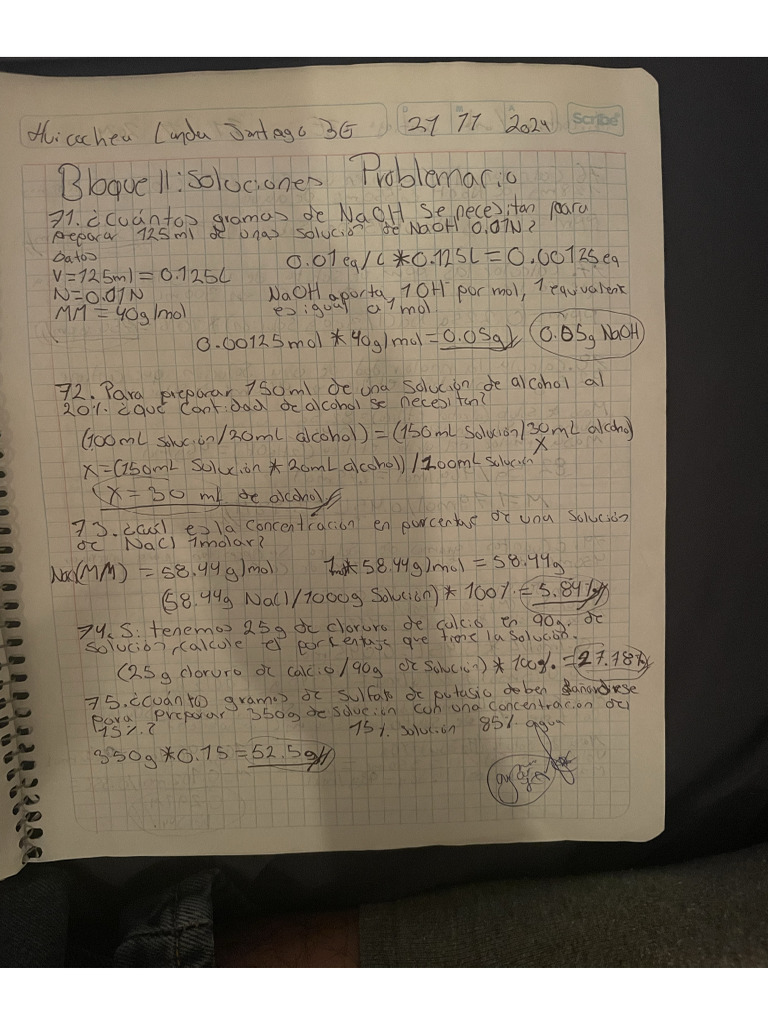 Huicochea Landa Santiago 3G 21 11 2024 Scribe
Bloque II: Soluciones Problemario
71. ¿Cuántos gramos de NaOH se necesitan para
preparar 125ml de unas solución de NaOH 0.01N?
Datos
V=125ml=0.125L 0.01eq/L*0.125L=0.00125eq
N=0.01N NaOH aporta 1OH por mol, 1 equivalent
MM=40g/mol es igual a 1mol
0.00125mol*40g/mol=0.05g 0.05g NaOH
72. Para preparar 150ml de una solución de alcohol al
20% ¿que cantidad de alcohol se necesitan?
(100mL solución/20mL alcohol)=(150mL solución/30mL alcohol)
X
X=(150mL solución*20mL alcohol)/100mL solución
X=30 mL de alcohol
73. ¿cuál es la concentración en porcentaje de una solución
de NaCl 1molar?
NaCl(MM)=58.44g/mol 1*58.44g/mol=58.44g
(58.44g NaCl/1000g solución)*100%=5.84%
74. Si tenemos 25g de cloruro de calcio en 90g. de
solución, calcule el porcentaje que tiene la solución.
(25g cloruro de calcio/90g de solución)*100%.=27.78%
75. ¿cuántos gramos de sulfato de potasio deben
para preparar 350g de solución con una concentración del
15%? 15% solución 85% agua
350g*0.15=52.5g